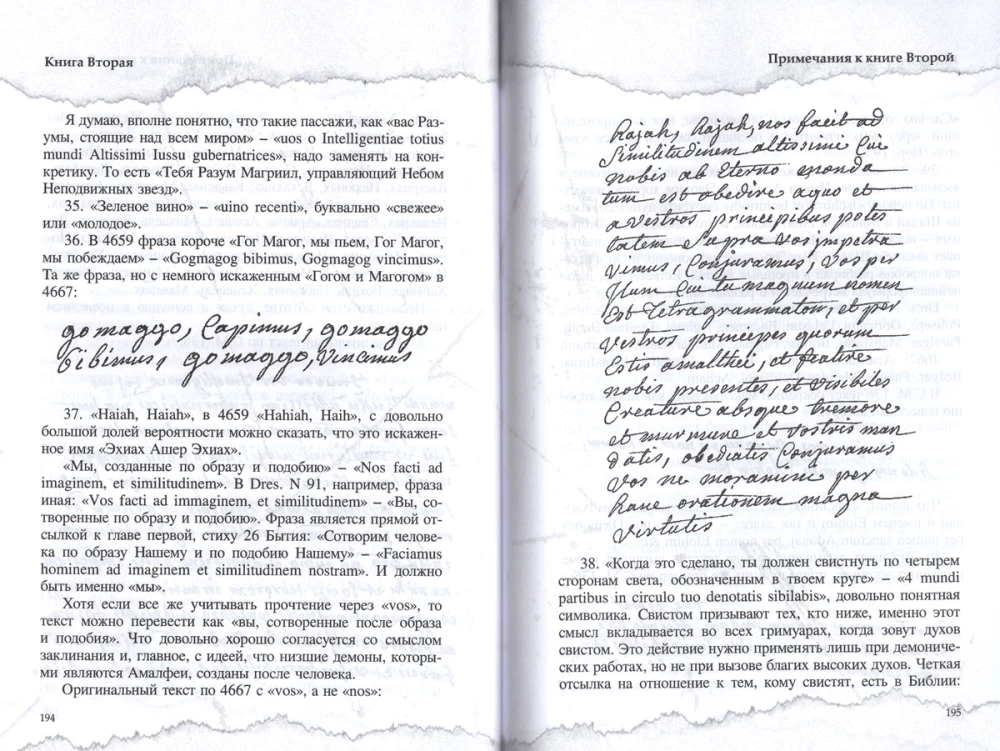 Книга Вторая
Я думаю, вполне понятно, что такие пассажи, как «вас Раз-
умы, стоящие над всем миром» – «uos o Intelligentiae totius
mundi Altissimi Iussu gubernatrices», надо заменять на кон-
кретику. То есть «Тебя Разум Магриил, управляющий Небом
Неподвижных звезд».
35. «Зеленое вино» – «uino recenti», буквально «свежее»
или «молодое».
36. В 4659 фраза короче «Гог Магог, мы пьем, Гог Магог,
мы побеждаем» – «Gogmagog bibimus, Gogmagog vincimus».
Та же фраза, но с немного искаженным «Гогом и Магогом» в
4667:
gomaggo, Capimus, gomaggo
bibimus, gomaggo, Vincimus
37. «Haiah, Haiah», в 4659 «Hahiah, Haih», с довольно
большой долей вероятности можно сказать, что это искажен-
ное имя «Эхиах Ашер Эхиах».
«Мы, созданные по образу и подобию» – «Nos facti ad
imaginem, et similitudinem». В Dres. N 91, например, фраза
иная: «Vos facti ad immaginem, et similitudinem» – «Вы, со-
творенные по образу и подобию». Фраза является прямой от-
сылкой к главе первой, стиху 26 Бытия: «Сотворим челове-
ка по образу Нашему и по подобию Нашему» – «Faciamus
hominem ad imaginem et similitudinem nostram». И должно
быть именно «мы».
Хотя если все же учитывать прочтение через «vos», то
текст можно перевести как «вы, сотворенные после образа
и подобия». Что довольно хорошо согласуется со смыслом
заклинания и, главное, с идеей, что низшие демоны, которы-
ми являются Амалфеи, созданы после человека.
Оригинальный текст по 4667 с «vos», а не «nos»:
194
Примечания к книге Второй
nos facib ad
Similitudinem altissimi Cui
nobis ab Eterno monda
tum est obedire aquo et
a Vestros principibus potes
tatem Supra Vos impetra
Vimus, Conjuramus, Vos per
Illum Cui tu magnum nomen
Est Tetragrammaton, et per
Vestros principes quorum
Estis amalthei, et
nobis presentes, et Visibiles
Creature absque tremore
et murmure et Vostris man
datis, obediatis Conjuramus
Vos ne moramini per
hanc orationem magna
Virtutis
38. «Когда это сделано, ты должен свистнуть по четырем
сторонам света, обозначенным в твоем круге» – «4 mundi
partibus in circulo tuo denotatis sibilabis», довольно понятная
символика. Свистом призывают тех, кто ниже, именно этот
смысл вкладывается во всех гримуарах, когда зовут духов
свистом. Это действие нужно применять лишь при демониче-
ских работах, но не при вызове благих высоких духов. Четкая
отсылка на отношение к тем, кому свистят, есть в Библии:
195